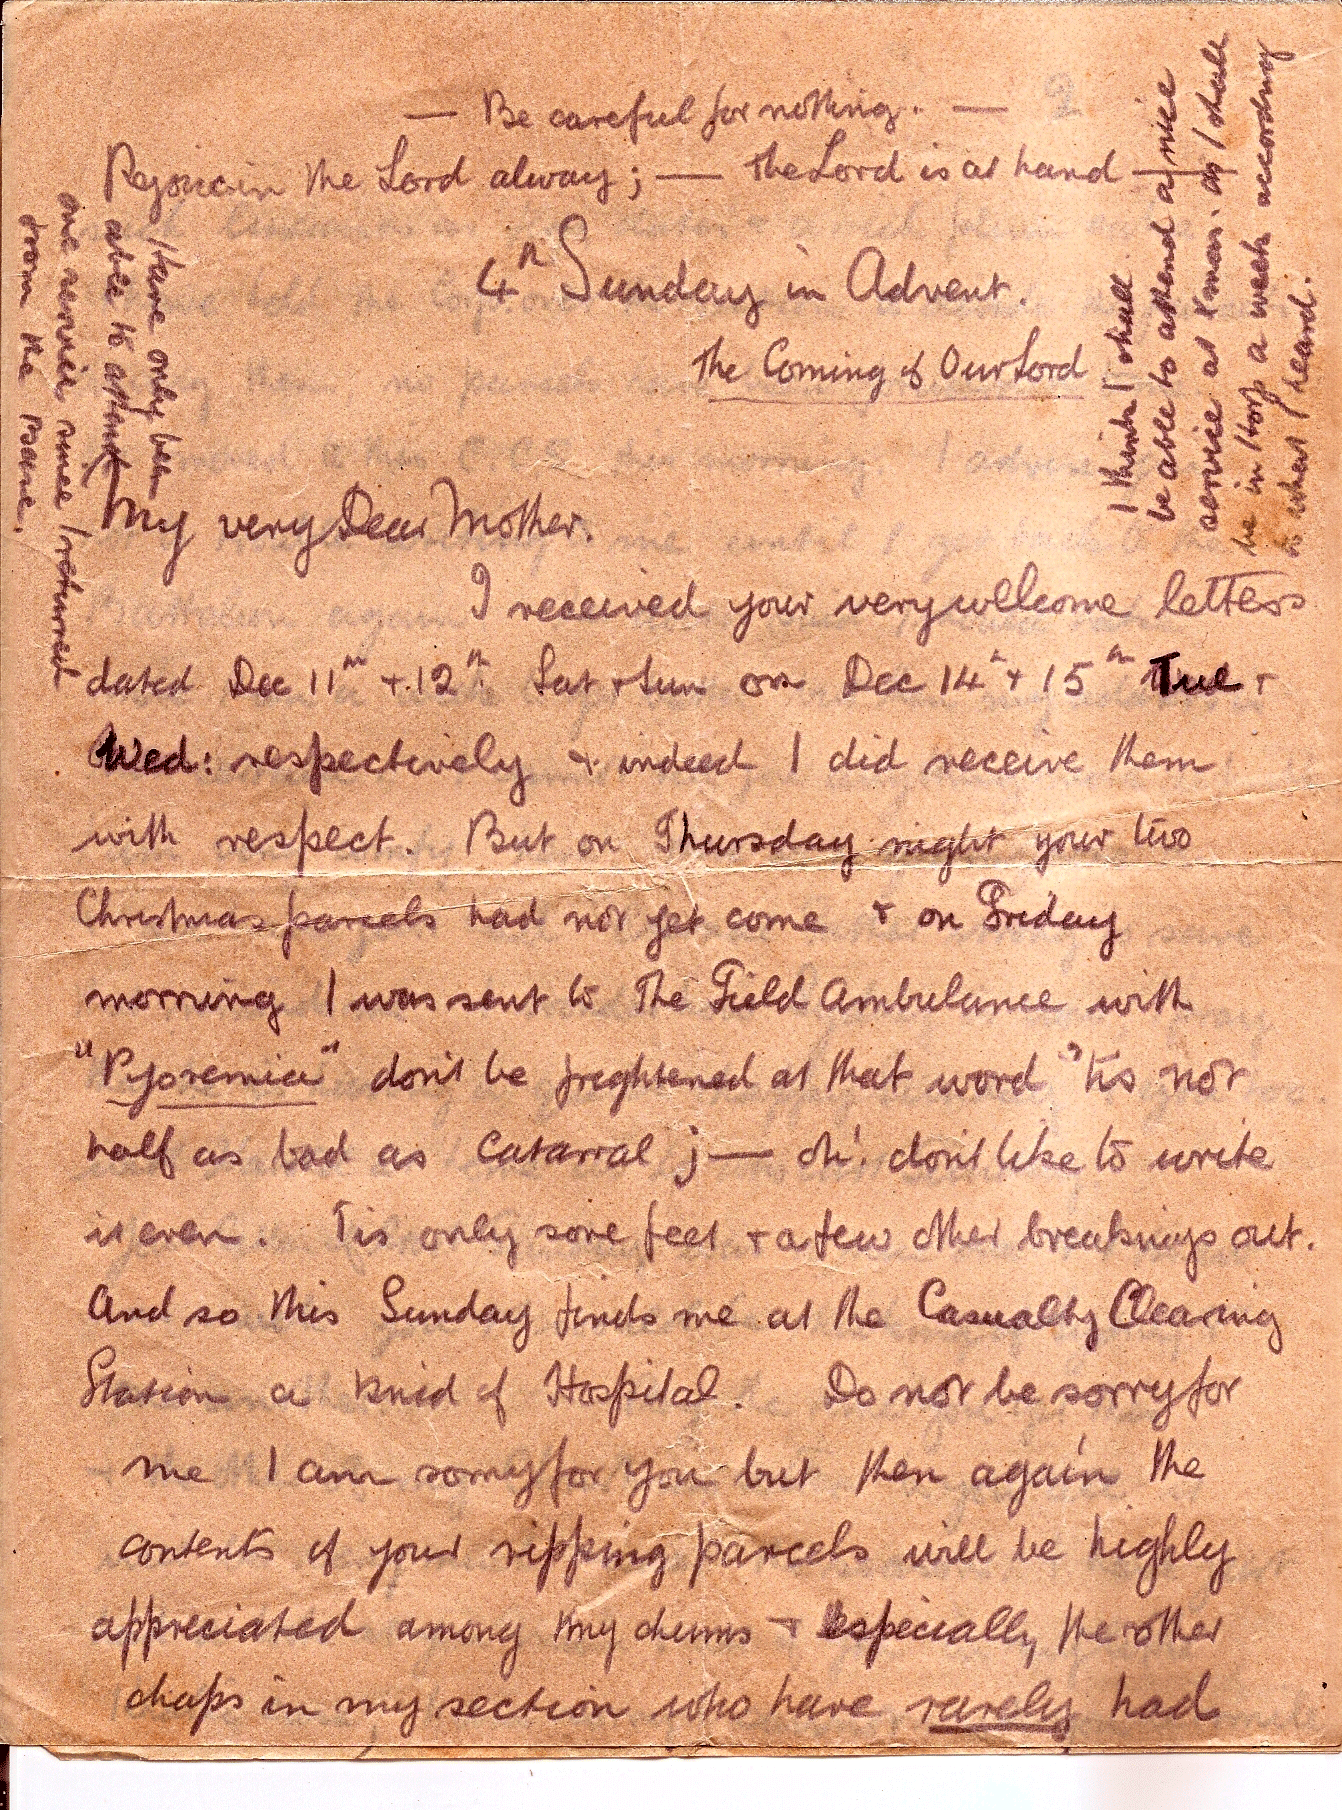 — Be careful for nothing. — 2
Rejoice in the Lord alway; — the Lord is at hand —
4th Sunday in Advent.
The Coming of Our Lord
My very Dear Mother.
I received your very wellcome letters
dated Dec 11th + 12th Sat + Sun on Dec 14th + 15th Tue +
Wed: respectively + indeed I did receive them
with respect. But on Thursday night your two
Christmas parcels had not yet come + on Friday
morning I was sent to The Field Ambulance with
"Pyoremia" don't be freghtened at that word 'tis not
half as bad as Catarral ; — oh! don't like to write
it even. Tis only sore feet + a few other breakings out.
And so this Sunday finds me at the Casualty Clearing
Station a kind of Hospital. Do not be sorry for
me I am sorry for you but then again the
contents of your ripping parcels will be highly
appreciated among my chums + especially the other
chaps in my section who have rarely had
Have only been
able to attend
one service since I returned
from the Base.
I think I shall
be able to attend a nice
service at Xmas. as I shall
be in Hosp a week according
to what I heard.